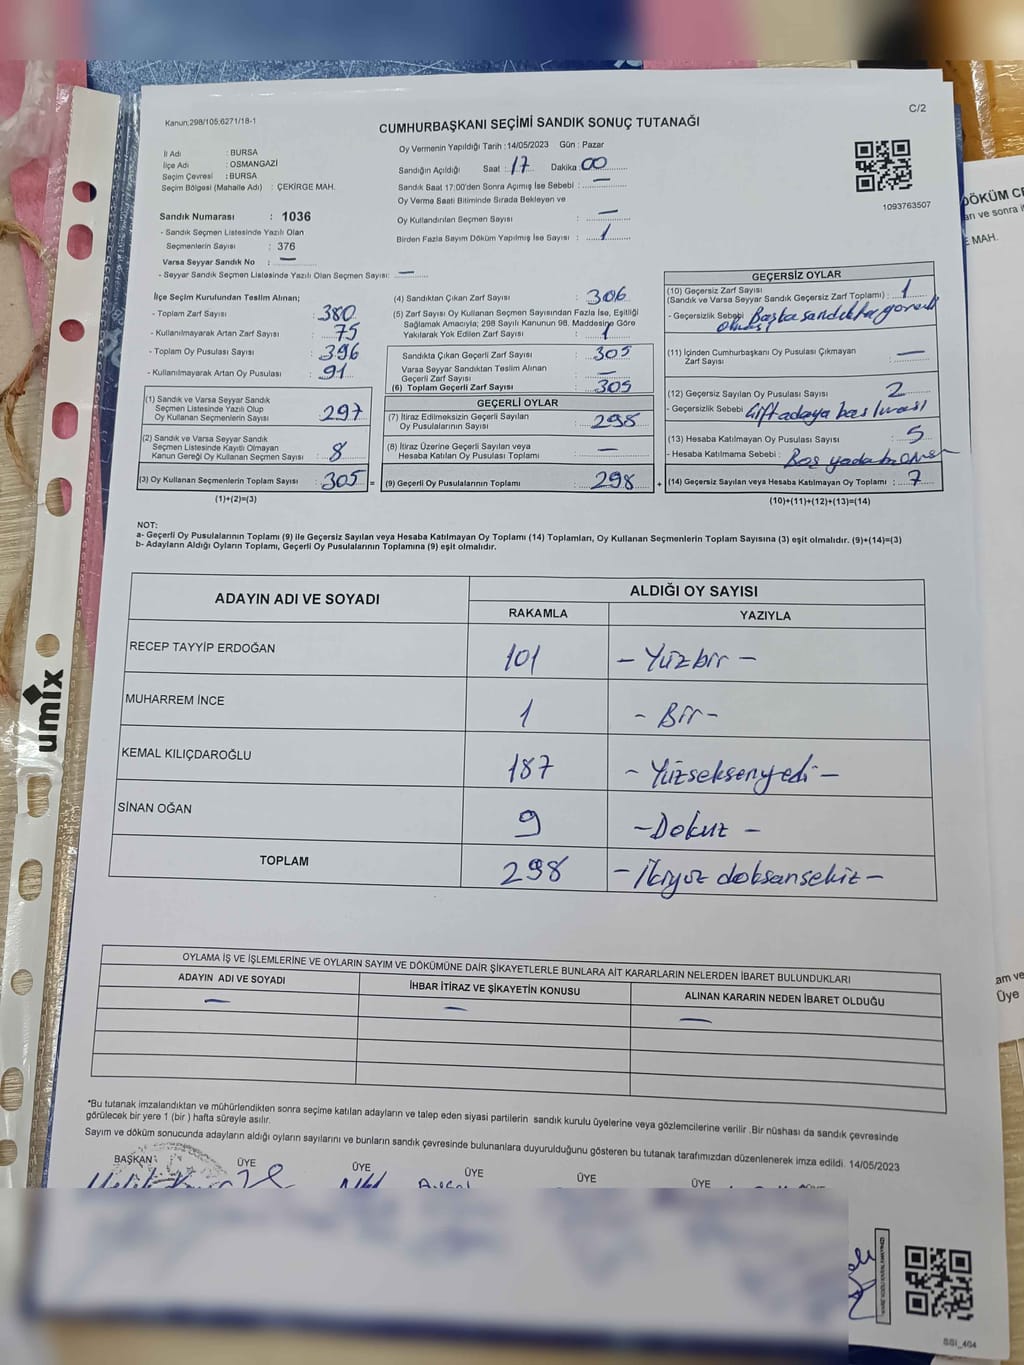 C/2
Kanun;298/105,6271/18-1
CUMHURBAŞKANI SEÇİMİ SANDIK SONUÇ TUTANAĞI
İl Adı : BURSA
İlçe Adı : OSMANGAZİ
Seçim Çevresi : BURSA
Seçim Bölgesi (Mahalle Adı) : ÇEKİRGE MAH.
Sandık Numarası : 1036
- Sandık Seçmen Listesinde Yazılı Olan
Seçmenlerin Sayısı : 376
Varsa Seyyar Sandık No : —
- Seyyar Sandık Seçmen Listesinde Yazılı Olan Seçmen Sayısı: —
Oy Vermenin Yapıldığı Tarih : 14/05/2023 Gün : Pazar
Sandığın Açıldığı Saat : 17 Dakika : 00
Sandık Saat 17:00'den Sonra Açımış İse Sebebi : —
Oy Verme Saati Bitiminde Sırada Bekleyen ve
Oy Kullandırılan Seçmen Sayısı : —
Birden Fazla Sayım Döküm Yapılmış İse Sayısı : 1
1093763507
İlçe Seçim Kurulundan Teslim Alınan;
- Toplam Zarf Sayısı : 380
- Kullanılmayarak Artan Zarf Sayısı : 75
- Toplam Oy Pusulası Sayısı : 396
- Kullanılmayarak Artan Oy Pusulası : 91
(1) Sandık ve Varsa Seyyar Sandık
Seçmen Listesinde Yazılı Olup
Oy Kullanan Seçmenlerin Sayısı : 297
(2) Sandık ve Varsa Seyyar Sandık
Seçmen Listesinde Kayıtlı Olmayan
Kanun Gereği Oy Kullanan Seçmen Sayısı : 8
(3) Oy Kullanan Seçmenlerin Toplam Sayısı : 305 =
(1)+(2)=(3)
(4) Sandıktan Çıkan Zarf Sayısı : 306
(5) Zarf Sayısı Oy Kullanan Seçmen Sayısından Fazla İse, Eşitliği
Sağlamak Amacıyla; 298 Sayılı Kanunun 98. Maddesine Göre
Yakılarak Yok Edilen Zarf Sayısı : 1
Sandıkta Çıkan Geçerli Zarf Sayısı : 305
Varsa Seyyar Sandıktan Teslim Alınan
Geçerli Zarf Sayısı : —
(6) Toplam Geçerli Zarf Sayısı : 305
GEÇERLİ OYLAR
(7) İtiraz Edilmeksizin Geçerli Sayılan
Oy Pusulalarının Sayısı : 298
(8) İtiraz Üzerine Geçerli Sayılan veya
Hesaba Katılan Oy Pusulası Toplamı : —
(9) Geçerli Oy Pusulalarının Toplamı : 298 +
GEÇERSİZ OYLAR
(10) Geçersiz Zarf Sayısı
(Sandık ve Varsa Seyyar Sandık Geçersiz Zarf Toplamı) : 1
- Geçersizlik Sebebi : Başka sandıkta
(11) İçinden Cumhurbaşkanı Oy Pusulası Çıkmayan
Zarf Sayısı : —
(12) Geçersiz Sayılan Oy Pusulası Sayısı : 2
- Geçersizlik Sebebi : Çift adaya basılması
(13) Hesaba Katılmayan Oy Pusulası Sayısı : 5
- Hesaba Katılmama Sebebi : Boş yada
(14) Geçersiz Sayılan veya Hesaba Katılmayan Oy Toplamı : 7
(10)+(11)+(12)+(13)=(14)
NOT:
a- Geçerli Oy Pusulalarının Toplamı (9) ile Geçersiz Sayılan veya Hesaba Katılmayan Oy Toplamı (14) Toplamları, Oy Kullanan Seçmenlerin Toplam Sayısına (3) eşit olmalıdır. (9)+(14)=(3)
b- Adayların Aldığı Oyların Toplamı, Geçerli Oy Pusulalarının Toplamına (9) eşit olmalıdır.
ADAYIN ADI VE SOYADI ALDIĞI OY SAYISI
RAKAMLA YAZIYLA
RECEP TAYYİP ERDOĞAN 101 - Yüzbir -
MUHARREM İNCE 1 - Bir -
KEMAL KILIÇDAROĞLU 187 - Yüzseksenyedi -
SİNAN OĞAN 9 - Dokuz -
TOPLAM 298 - İkiyüz doksansekiz -
OYLAMA İŞ VE İŞLEMLERİNE VE OYLARIN SAYIM VE DÖKÜMÜNE DAİR ŞİKAYETLERLE BUNLARA AİT KARARLARIN NELERDEN İBARET BULUNDUKLARI
ADAYIN ADI VE SOYADI İHBAR İTİRAZ VE ŞİKAYETİN KONUSU ALINAN KARARIN NEDEN İBARET OLDUĞU
— — —
*Bu tutanak imzalandıktan ve mühürlendikten sonra seçime katılan adayların ve talep eden siyasi partilerin sandık kurulu üyelerine veya gözlemcilerine verilir .Bir nüshası da sandık çevresinde
görülecek bir yere 1 (bir ) hafta süreyle asılır.
Sayım ve döküm sonucunda adayların aldığı oyların sayılarını ve bunların sandık çevresinde bulunanlara duyurulduğunu gösteren bu tutanak tarafımızdan düzenlenerek imza edildi. 14/05/2023
BAŞKAN ÜYE ÜYE ÜYE ÜYE ÜYE
SSI_404
umix
DÖKÜM
MAH.
Üye